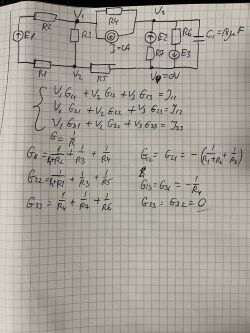 V₁ V₃
R2 R4
E1 R3 J=1A E2 R6 C₁=1δμF
R7 E3
R1 V₂ R5 V₄=0V
V₁G₁₁ + V₂G₁₂ + V₃G₁₃ = J₁₁
V₁G₂₁ + V₂G₂₂ + V₃G₂₃ = J₂₂
V₁G₃₁ + V₂G₃₂ + V₃G₃₃ = J₃₃
G = 1/R
G₁₁ = 1/(R1+R2) + 1/R3 + 1/R4 G₁₂ = G₂₁ = -(1/(R1+R2) + 1/R3)
G₂₂ = 1/(R2+R1) + 1/R3 + 1/R5 G₁₃ = G₃₁ = -1/R4
G₃₃ = 1/R4 + 1/R7 + 1/R6 G₂₃ = G₃₂ = 0